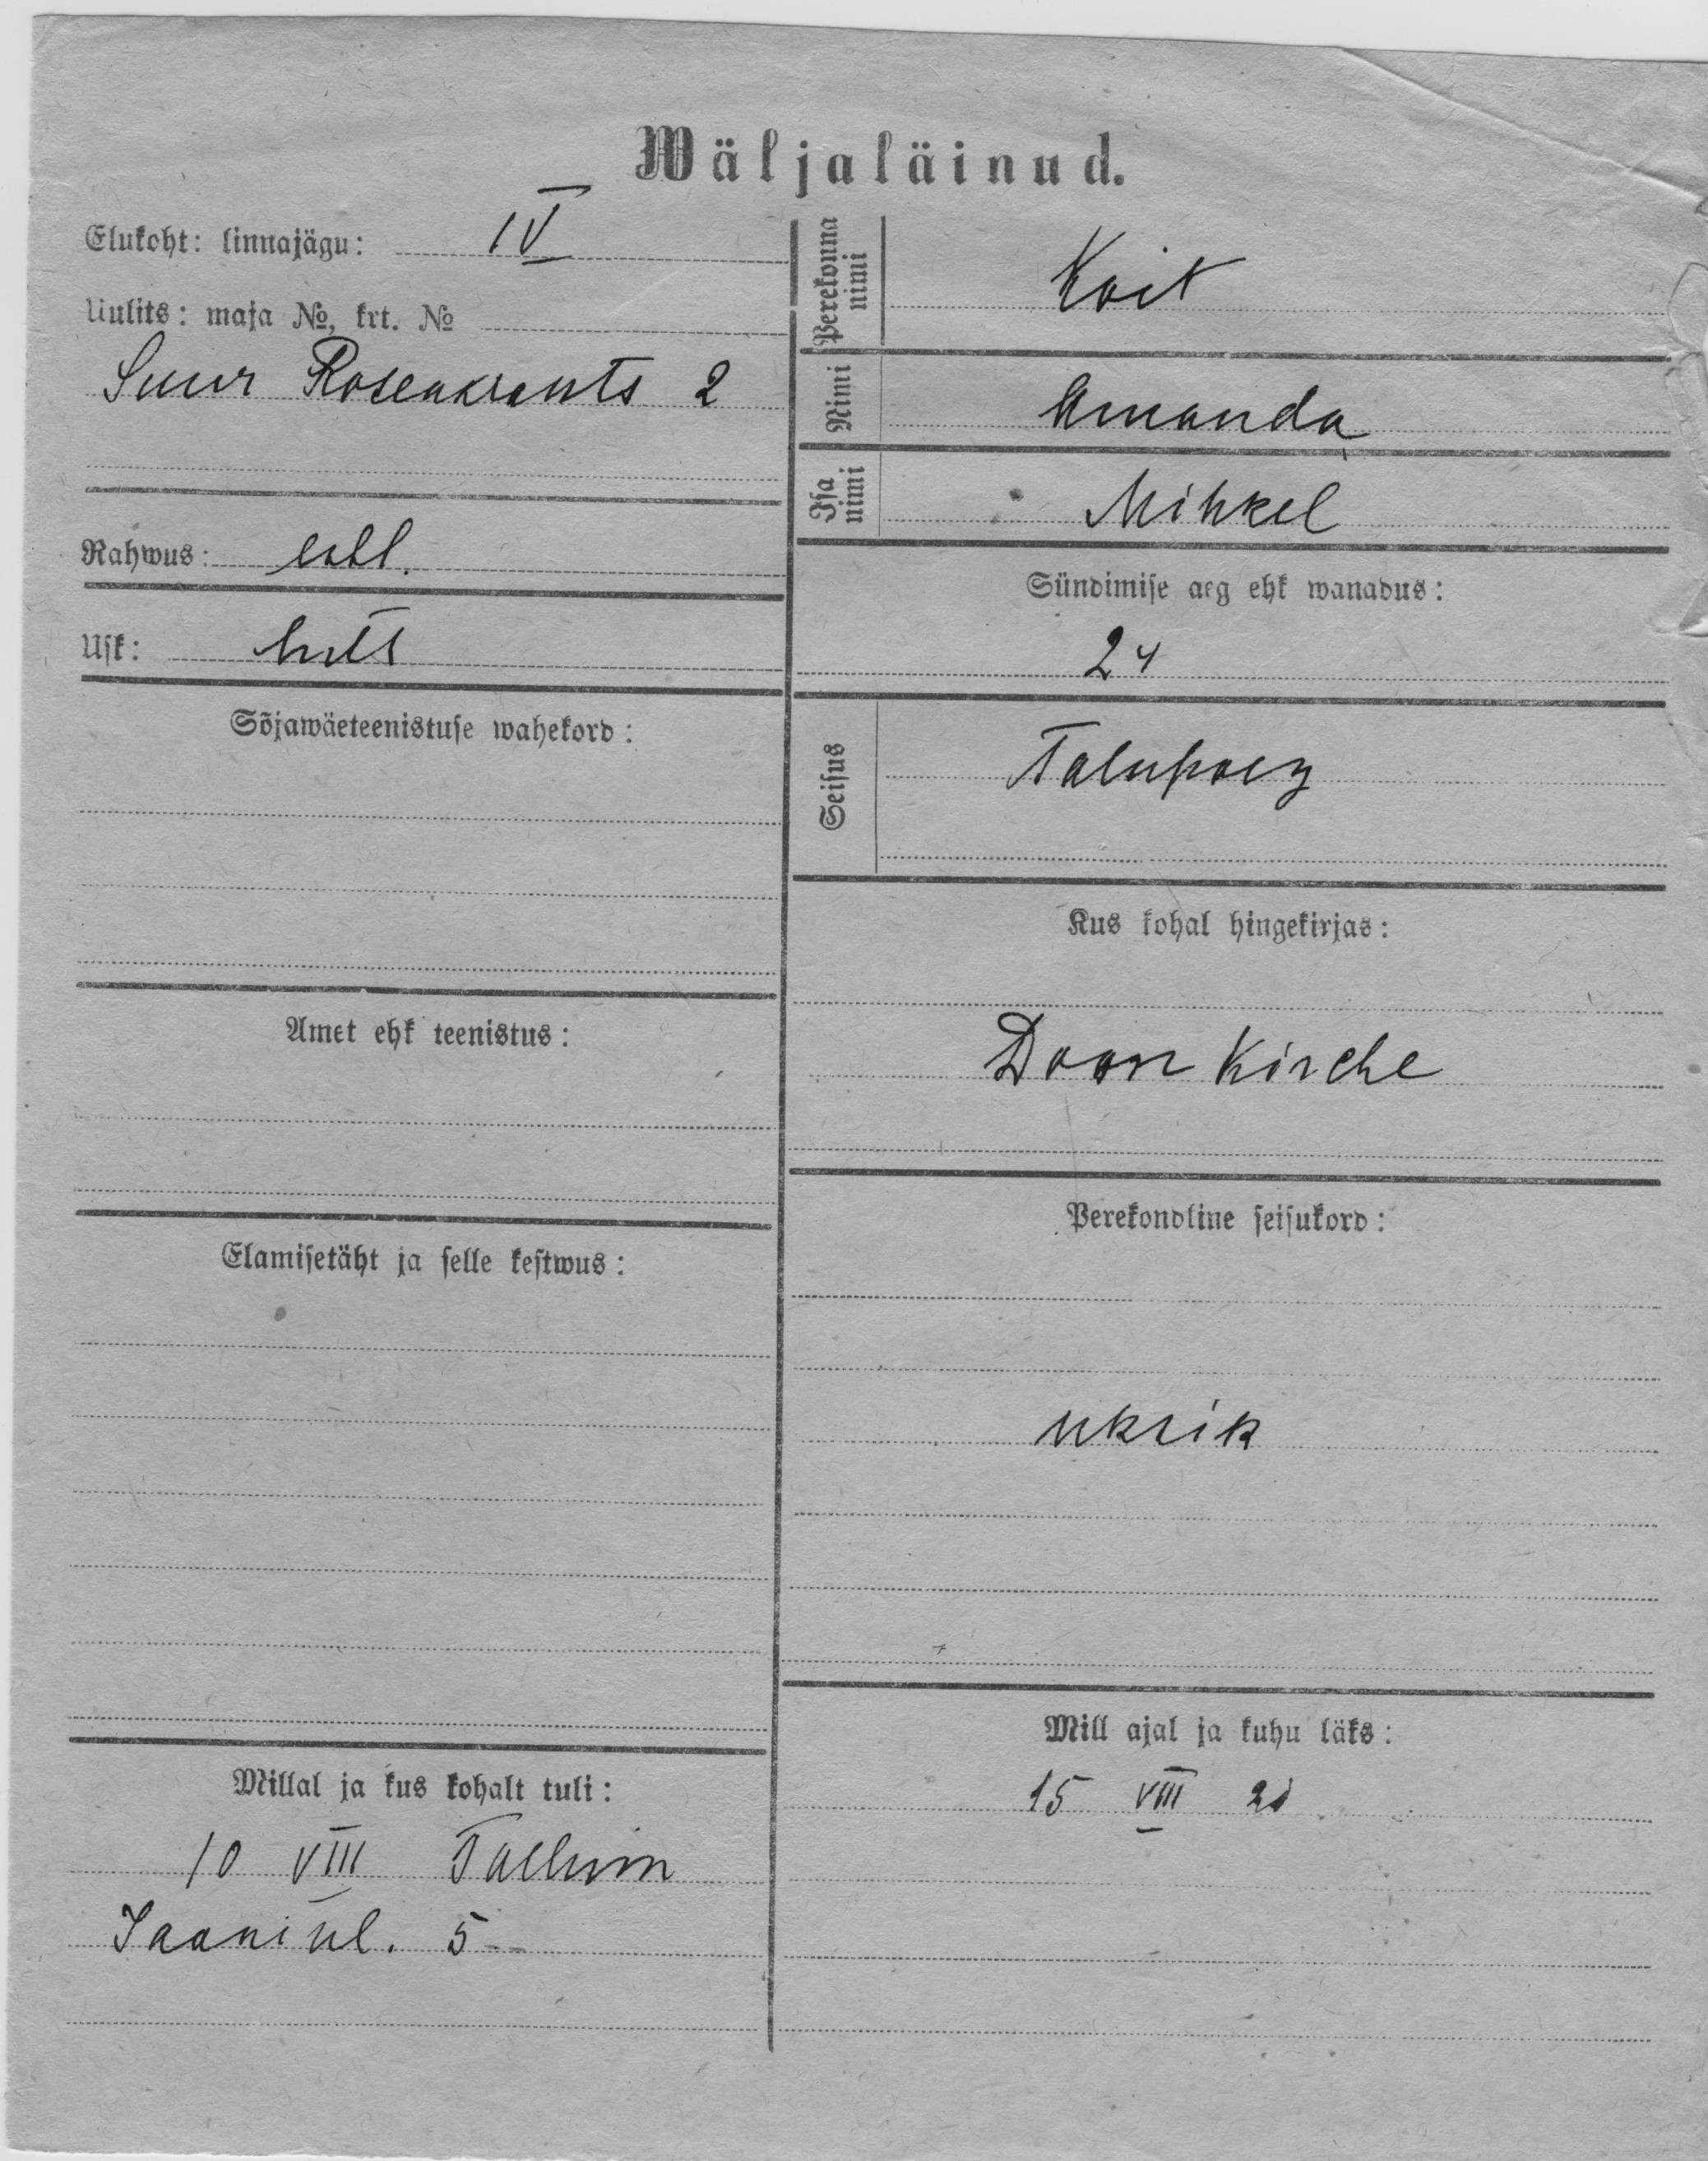 Wäljaläinud.
Elukoht: linnajägu: IV
Uulits: maja №, krt. №
Suur Rosenkrants 2
Rahwus: eestl.
Usk: luts
Sõjawäeteenistuse wahekord:
Amet ehk teenistus:
Elamisetäht ja selle kestwus:
Millal ja kus kohalt tuli:
10 VIII Tallinn
Jaani ul. 5
Perekonna nimi
Koit
Nimi
Amanda
Isa nimi
Mihkel
Sündimise aeg ehk wanadus:
24
Seisus
Talupoeg
Kus kohal hingekirjas:
Doom Kirche
Perekondline seisukord:
uksik
Mill ajal ja kuhu läks:
15 VIII 21